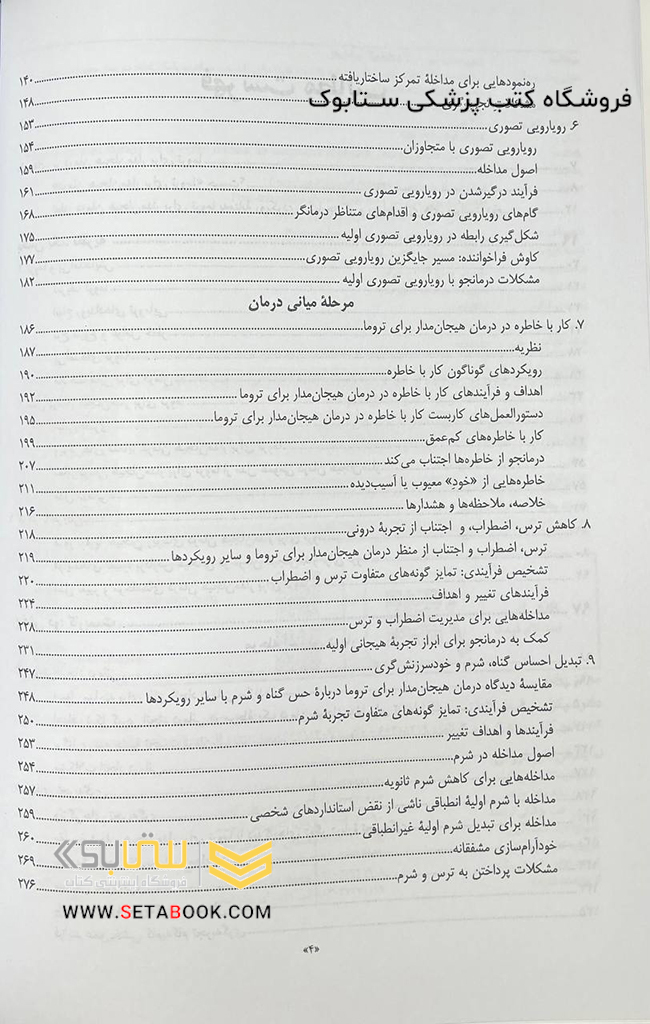 ره‌نمودهایی برای مداخلهٔ تمرکز ساختاریافته ۱۴۰
فروشگاه کتب پزشکی ستابوک
۱۴۸
۶. رویارویی تصوری ۱۵۳
رویارویی تصوری با متجاوزان ۱۵۴
اصول مداخله ۱۵۹
فرآیند درگیرشدن در رویارویی تصوری ۱۶۱
گام‌های رویارویی تصوری و اقدام‌های متناظر درمانگر ۱۶۸
شکل‌گیری رابطه در رویارویی تصوری اولیه ۱۷۵
کاوش فراخواننده: مسیر جایگزین رویارویی تصوری ۱۷۷
مشکلات درمانجو با رویارویی تصوری اولیه ۱۸۲
مرحلهٔ میانی درمان
۷. کار با خاطره در درمان هیجان‌مدار برای تروما ۱۸۶
نظریه ۱۸۷
رویکردهای گوناگون کار با خاطره ۱۹۰
اهداف و فرآیندهای کار با خاطره در درمان هیجان‌مدار برای تروما ۱۹۲
دستورالعمل‌های کاربست کار با خاطره در درمان هیجان‌مدار برای تروما ۱۹۵
کار با خاطره‌های کم‌عمق ۱۹۹
درمانجو از خاطره‌ها اجتناب می‌کند ۲۰۷
خاطره‌هایی از «خودِ» معیوب یا آسیب‌دیده ۲۱۱
خلاصه، ملاحظه‌ها و هشدارها ۲۱۶
۸. کاهش ترس، اضطراب، و اجتناب از تجربهٔ درونی ۲۱۸
ترس، اضطراب و اجتناب از منظر درمان هیجان‌مدار برای تروما و سایر رویکردها ۲۱۹
تشخیص فرآیندی: تمایز گونه‌های متفاوت ترس و اضطراب ۲۲۰
فرآیندهای تغییر و اهداف ۲۲۴
مداخله‌هایی برای مدیریت اضطراب و ترس ۲۲۸
کمک به درمانجو برای ابراز تجربهٔ هیجانی اولیه ۲۳۱
۹. تبدیل احساس گناه، شرم و خودسرزنش‌گری ۲۴۷
مقایسهٔ دیدگاه درمان هیجان‌مدار برای تروما دربارهٔ حس گناه و شرم با سایر رویکردها ۲۴۸
تشخیص فرآیندی: تمایز گونه‌های متفاوت تجربهٔ شرم ۲۵۰
فرآیندها و اهداف تغییر ۲۵۳
اصول مداخله در شرم ۲۵۴
مداخله‌هایی برای کاهش شرم ثانویه ۲۵۷
مداخله با شرم اولیهٔ انطباقی ناشی از نقض استانداردهای شخصی ۲۵۹
مداخله برای تبدیل شرم اولیهٔ غیرانطباقی ۲۶۰
خودآرام‌سازی مشفقانه ۲۶۹
مشکلات پرداختن به ترس و شرم ۲۷۶
ستابوک
فروشگاه اینترنتی کتاب
WWW.SETABOOK.COM
«۴»